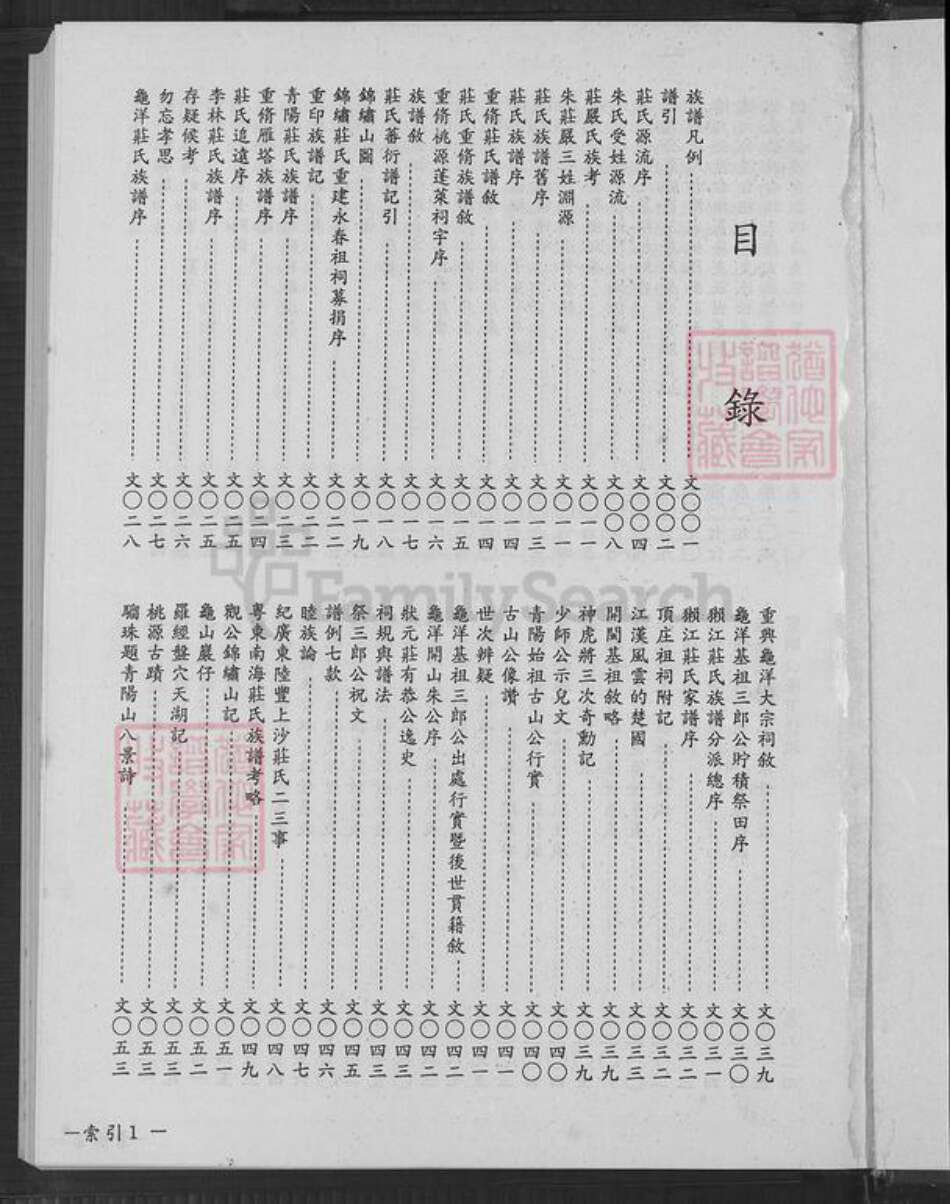 目錄
族譜凡例 文〇〇一
譜引 文〇〇二
莊氏源流序 文〇〇四
朱氏受姓源流 文〇〇八
莊嚴氏族考 文〇一一
朱莊嚴三姓淵源 文〇一一
莊氏族譜舊序 文〇一三
莊氏族譜序 文〇一四
重脩莊氏譜敘 文〇一四
莊氏重脩族譜敘 文〇一五
重脩桃源蓬萊祠宇序 文〇一六
族譜敘 文〇一七
莊氏蕃衍譜記引 文〇一八
錦繡山圖 文〇一九
錦繡莊氏重建永春祖祠募捐序 文〇二二
重印族譜記 文〇二二
青陽莊氏族譜序 文〇二三
重脩雁塔族譜序 文〇二四
莊氏追遠序 文〇二五
李林莊氏族譜序 文〇二五
存疑候考 文〇二六
勿忘孝思 文〇二七
龜洋莊氏族譜序 文〇二八
重興龜洋大宗祠敘 文〇三九
龜洋基祖三郎公貯積祭田序 文〇三〇
獺江莊氏族譜分派總序 文〇三一
獺江莊氏家譜序 文〇三二
頂庄祖祠附記 文〇三二
江漢風雲的楚國 文〇三三
開閩基祖敘略 文〇三九
神虎將三次奇勳記 文〇三九
少師公示兒文 文〇四〇
青陽始祖古山公行實 文〇四〇
古山公像讚 文〇四一
世次辨疑 文〇四一
龜洋基祖三郎公出處行實暨後世貫籍敘 文〇四二
龜洋開山朱公序 文〇四二
狀元莊有恭公逸史 文〇四三
祠規與譜法 文〇四三
祭三郎公祝文 文〇四五
譜例七款 文〇四六
睦族論 文〇四七
紀廣東陸豐上沙莊氏二三事 文〇四八
粵東南海莊氏族譜考略 文〇四九
觀公錦繡山記 文〇五一
龜山巖仔 文〇五二
羅經盤穴天湖記 文〇五三
桃源古蹟 文〇五三
騮珠題青陽山八景詩 文〇五三
—索引1—
FamilySearch